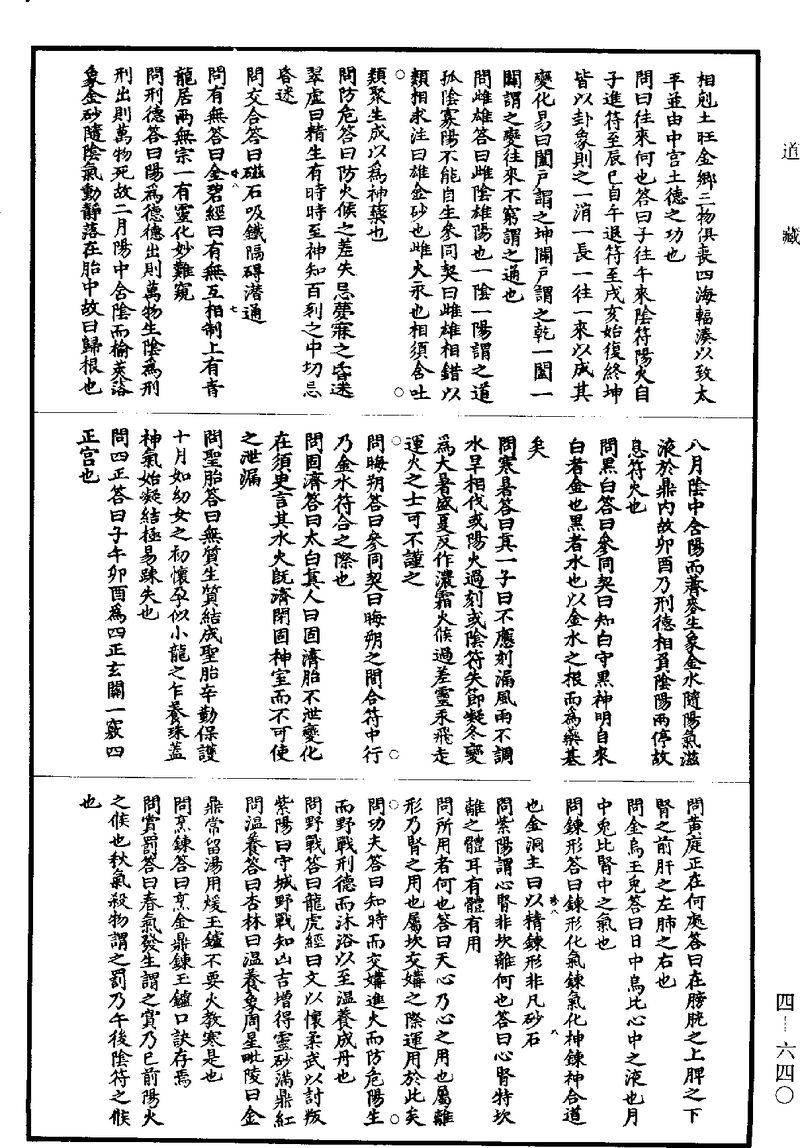 道藏
相剋土旺金鄉三物俱喪四海輻湊以致太
平並由中宮土德之功也
問曰往來何也答曰子往午來陰符陽火自
子進符至辰巳自午退符至戌亥始復終坤
皆以卦象則之一消一長一往一來以成其
變化易曰闔戶謂之坤闢戶謂之乾一闔一
闢謂之變往來不窮謂之通也
問雌雄答曰雌陰雄陽也一陰一陽謂之道
孤陰寡陽不能自生參同契曰雌雄相錯以
類相求注曰雄金砂也雌火汞也相須含吐
類聚生成以為神藥也
問防危答曰防火候之差失忌夢寐之昏迷
翠虛曰精生有時時至神知百刻之中切忌
昏迷
問交合答曰磁石吸鐵隔礙潛通
問有無答曰金碧經曰有無互相制上有青
龍居兩無宗一有靈化妙難窺
問刑德答曰陽為德德出則萬物生陰為刑
刑出則萬物死故二月陽中含陰而榆莢落
象金砂隨陰氣動靜落在胎中故曰歸根也
八月陰中含陽而薺麥生象金水隨陽氣滋
液於鼎內故卯酉乃刑德相負陰陽兩停故
息符火也
問黑白答曰參同契曰知白守黑神明自來
白者金也黑者水也以金水之根而為藥基
矣
問寒暑答曰真一子曰不應刻漏風雨不調
水旱相伐或陽火過刻或陰符失節凝冬變
為大暑盛夏反作濃霜火候過差靈汞飛走
運火之士可不謹之
問晦朔答曰參同契曰晦朔之間合符中行
乃金水符合之際也
問固濟答曰太白真人曰固濟胎不泄變化
在須臾言其水火既濟閉固神室而不可使
之泄漏
問聖胎答曰無質生質結成聖胎辛勤保護
十月如幼女之初懷孕似小龍之乍養珠蓋
神氣始凝結極易踈失也
問四正答曰子午卯酉為四正玄關一竅四
正宮也
問黃庭正在何處答曰在膀胱之上脾之下
腎之前肝之左肺之右也
問金烏玉兔答曰日中烏比心中之液也月
中兔比腎中之氣也
問鍊形答曰鍊形化氣鍊氣化神鍊神合道
也金洞主曰以精鍊形非凡砂石
問紫陽謂心腎非坎離何也答曰心腎特坎
離之體耳有體有用
問所用者何也答曰天心乃心之用也屬離
形乃腎之用也屬坎交媾之際運用於此矣
問功夫答曰知時而交媾進火而防危陽生
而野戰刑德而沐浴以至溫養成丹也
問野戰答曰龍虎經曰文以懷柔武以討叛
紫陽曰守城野戰知凶吉增得靈砂滿鼎紅
問溫養答曰杏林曰溫養象周星毗陵曰金
鼎常留湯用煖玉鑪不要火教寒是也
問烹鍊答曰烹金鼎鍊玉鑪口訣存焉
問賞罰答曰春氣發生謂之賞乃巳前陽火
之候也秋氣殺物謂之罰乃午後陰符之候
也
四—六四〇